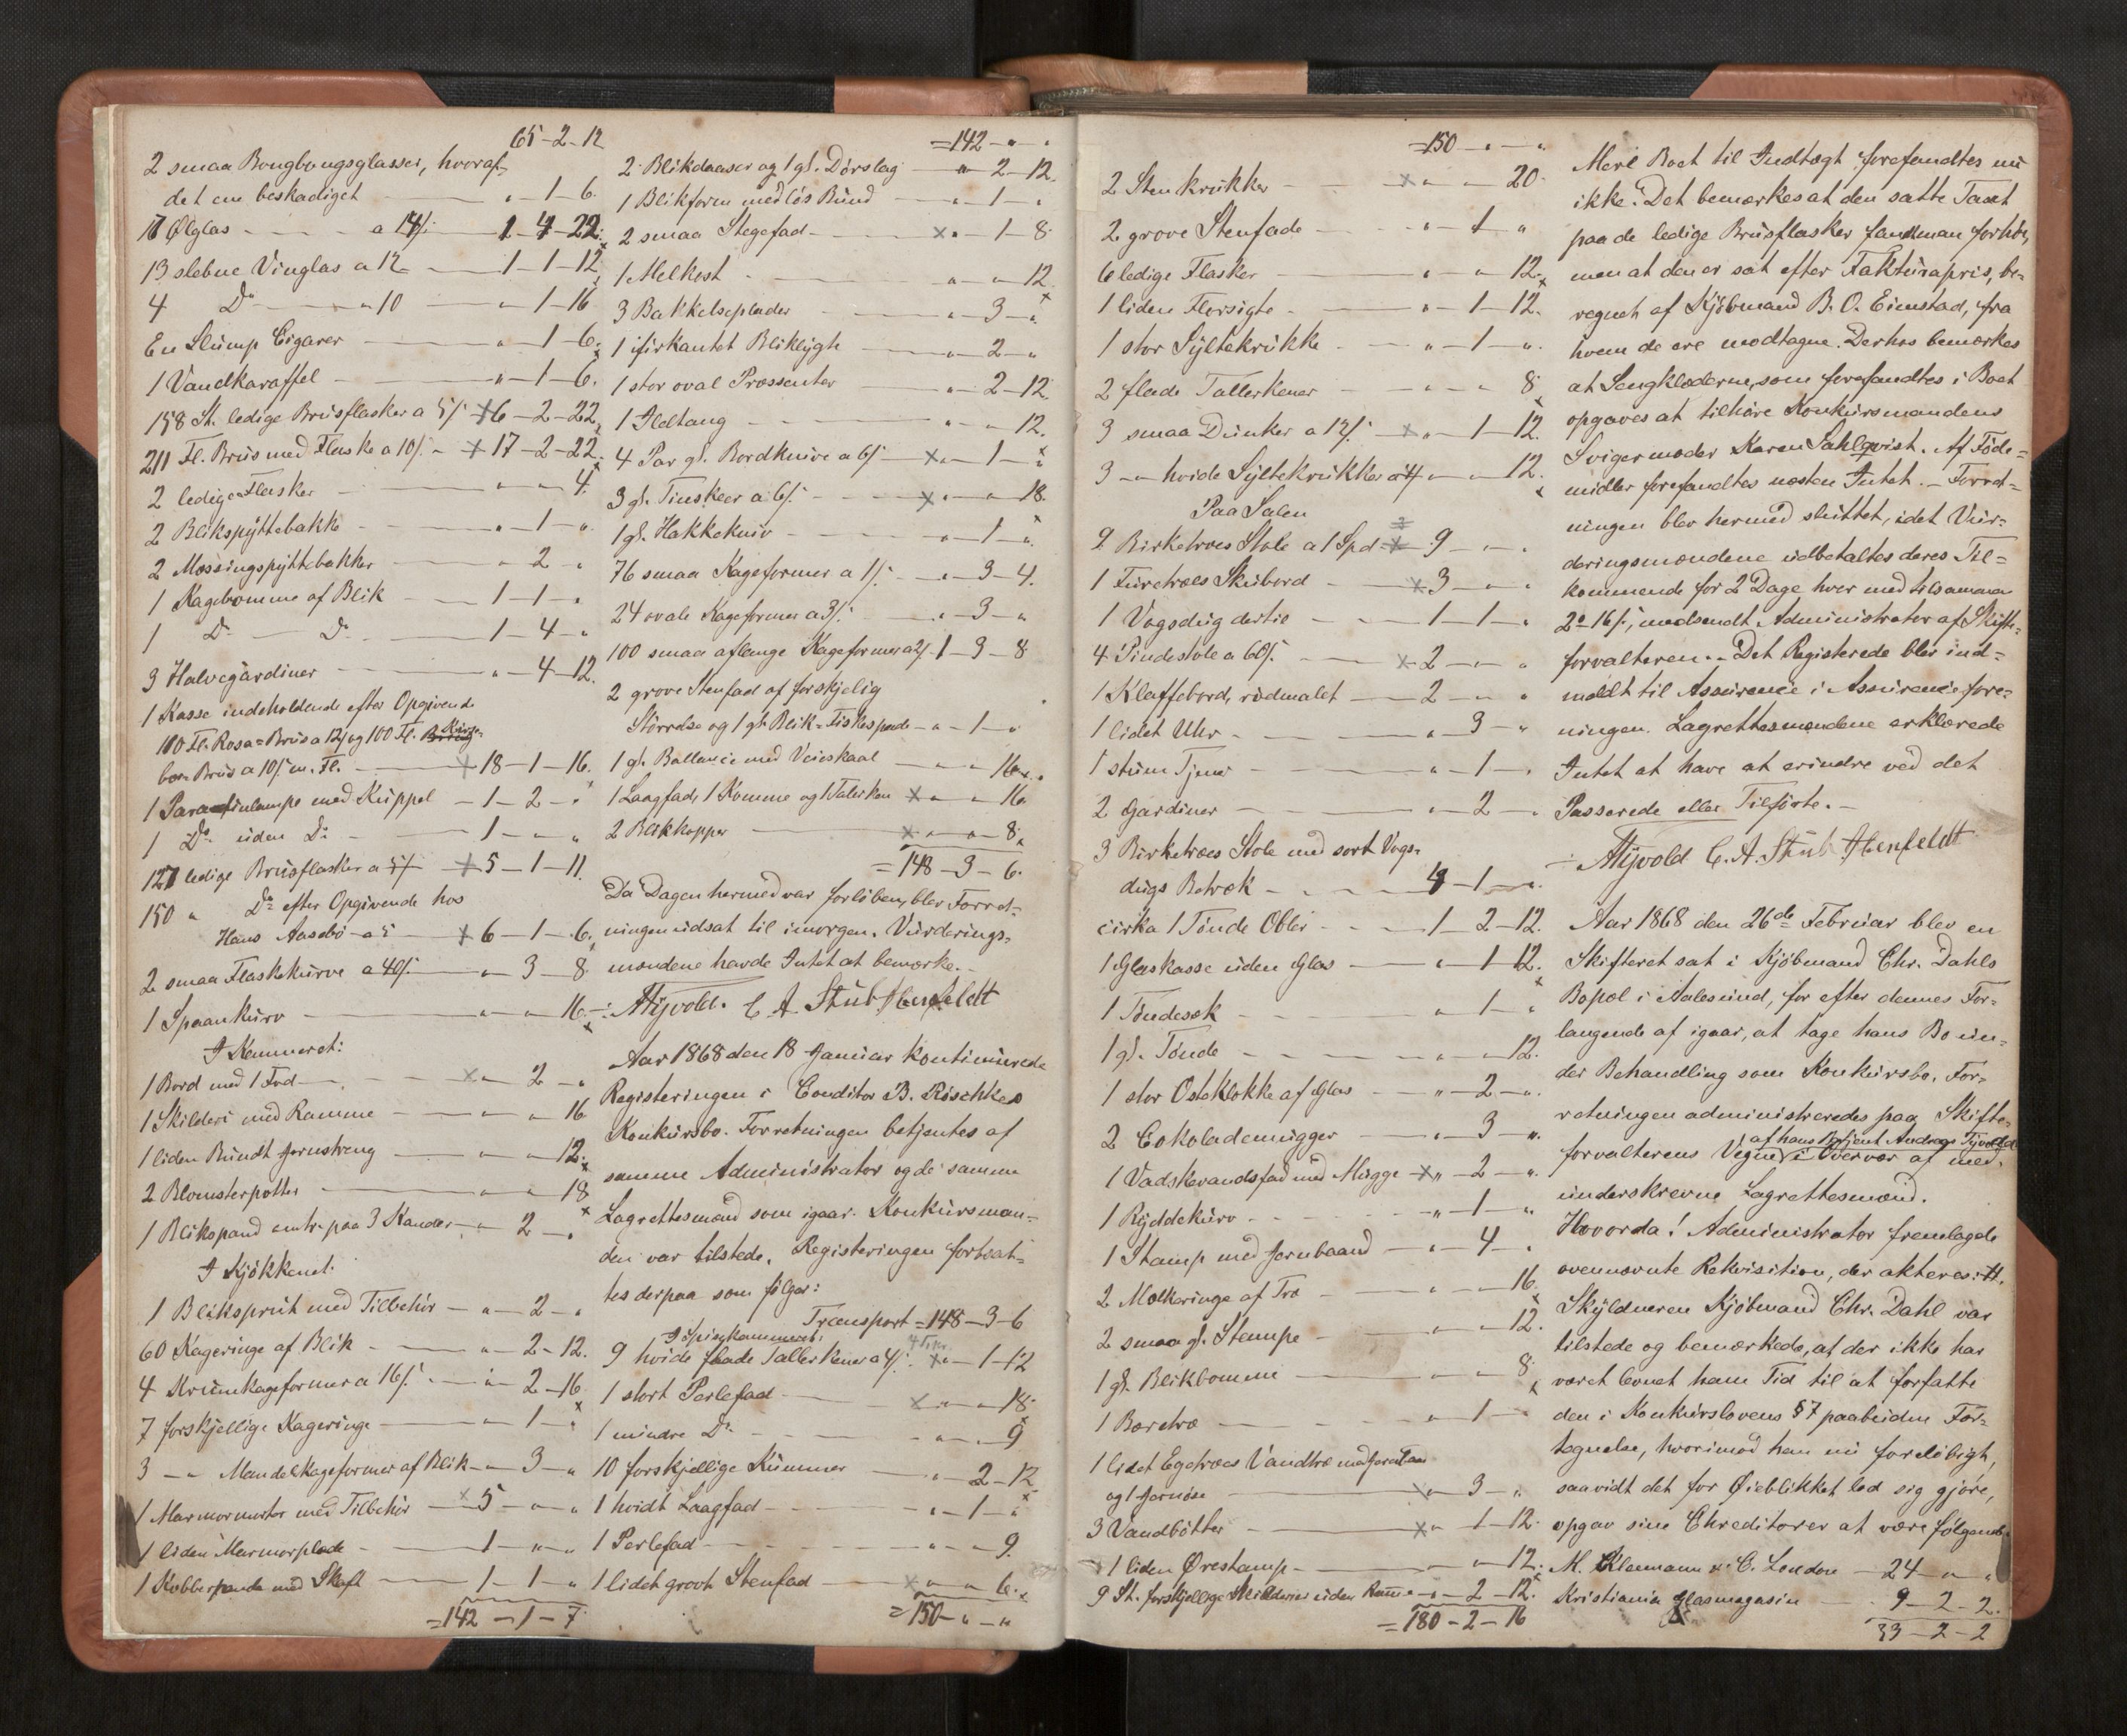 65-2-12
2 smaa Bongbongsglasser, hvoraf
det ene beskadiget " - 1 - 6.
17 Ølglas a 14/: 1-4-22.
13 slebne Vinglas a 12 1-1-12
4 Do " 10 " - 1 - 16
En Slump Cigarer " - 1 - 6.
1 Vandkaraffel " - 1 - 6.
158 St. ledige Brusflasker a 5/: x 6-2-22
211 Fl. Brus med Flaske a 10/: x 17-2-22.
2 ledige Flasker " - " - 4.
2 Blikspyttebakke " - 1 - "
2 Messingspyttebakker " - 2 - "
1 Kagebomme af Blik 1-1-"
1 Do Do 1-4-"
3 Halvegardiner " - 4 - 12.
1 Kasse indeholdende efter Opgivende
100 Fl. Rosa=Brus a 12/: og 100 Fl. Kirse-
bær Brus a 10/: m. Fl. x 18-1-16.
1 Parafinlampe med Kuppel 1-2-"
1 Do uden Do 1-"-"
127 ledige Brusflasker a 5/: x 5-1-11.
150 " Do efter Opgivende hos
Hans Aasebø a 5 x 6-1-6.
2 smaa Flaskekurve a 40/: " - 3 - 8
1 Spaankurv " - " - 16.
I Kammeret:
1 Bord med 1 Fod x " - 2 - "
1 Skilderi med Ramme " - " - 16
1 liden Bundt Jernstreng " - " - 12.
2 Blomsterpotter " - " - 18
1 Blikspand omtr. paa 3 Kander " - 2 - "
I Kjøkkenet:
1 Bliksprut med Tilbehør " - 2 - "
60 Kageringe af Blik " - 2 - 12.
4 Krumkageformer a 16/: " - 2 - 16
7 forskjellige Kageringe " - 1 - "
3 - " Mandelkageformer af Blik " - 3 - "
1 Marmormorter med Tilbehør x 5-"-"
1 liden Marmorplade 1-"-"
1 Kobberpande med Skaft 1-1-"
=142-1-7
=142-"-"
2 Blikdaaser og 1 gl. Dørslag " - 2 - 12.
1 Blikform med løs Bund " - 1 - "
2 smaa Stegefad x " - 1 - 8
1 Melkost " - " - 12
3 Bakkelseplader " - 3 - "
1 firkantet Bliklygte " - 2 - "
1 stor oval Præssenter " - 2 - 12.
1 Ildtang " - " - 12.
4 Par gl. Bordknive a 6/: x " - 1 - "
3 gl. Tinskeer a 6/: x " - " - 18.
1 gl. Hakkekniv " - 1 - "
76 smaa Kageformer a 1/: " - 3 - 4.
24 ovale Kageformer a 3/: " - 3 - "
100 smaa aflange Kageformer a 2/: 1-3-8
2 grove Stenfad af forskjelig
Størrelse og 1 gl. Blik=Fiskespade " - 1 - "
1 gl. Ballance med Veieskaal " - " - 16
1 Laagfad, 1 Komme og 1 Talerken x " - " - 16
2 Blikkopper x " - " - 8.
=148-3-6.
Da Dagen hermed var forløben, blev Forret-
ningen udsat til imorgen. Vurderings-
mændene havde Intet at bemærke.
Myvold. C. A. Stub Henfeldt
Aar 1868 den 18 Januar kontinuerede
Registeringen i Conditor B. Röschkes
Konkursbo. Forretningen betjentes af
samme Administrator og de samme
Lagrettesmænd som igaar. Konkursman-
den var tilstede. Registeringen fortsat-
tes derpaa som følger:
Transport =148-3-6
I Spisekammeret:
9 hvide flade Tallerkener a 4/: x " - 1 - 12
1 stort Perlefad x " - " - 18.
1 mindre Do " - " - 9
10 forskjellige Kummer " - 2 - 12
1 hvidt Laagfad " - 1 - "
1 Perlefad " - " - 9.
1 lidet grovt Stenfad x " - " - 6.
=150-"-"
=150-"-"
2 Stenkrukker x " - " - 20.
2 grove Stenfade " - 1 - "
6 ledige Flasker " - " - 12.
1 liden Florsigte " - 1 - 12.
1 stor Syltekrukke " - 1 - "
2 flade Tallerkener " - " - 8
3 smaa Dunker a 12/: x " - 1 - 12.
3 - " hvide Syltekrukker a 4 " - " - 12.
Paa Salen
9 Birketræes Stole a 1 Spd. x 9-"-"
1 Furetræes Skubord x 3-"-"
1 Vogsdug dertil 1-1-"
4 Pindestole a 60/: x 2-"-"
1 Klaffebord, rødmalet 2-"-"
1 lidet Uhr " - 3 - "
1 stum Tjener " - 1 - "
2 Gardiner " - 2 - "
3 Birketræes Stole med sort Vogs-
dugs Betræk 4-1-"
cirka 1 Tønde Oblei 1-2-12.
1 Glaskasse uden Glas " - 1 - 12.
1 Tøndesæk " - 1 - "
1 gl. Tønde " - " - 12.
1 stor Osteklokke af Glas " - 2 - "
2 Cokolademugger " - 3 - "
1 Vadskevandsfad med Mugge x " - 2 - "
1 Ryddekurv " - 1 - "
1 Stamp med Jernbaand " - 4 - "
2 Melkeringe af Træ " - " - 16.
2 smaa gl. Stampe " - " - 12.
1 gl. Blikbomme " - " - 8
1 Bæretræ " - 1 - "
1 lidet Egetræes Vandtræ med
og 1 Jernøse x " - 3 - "
3 Vandbøtter x " - 1 - 12.
1 liden Ørestamp " - " - 12.
9 St. forskjellige Skilderier uden Ramme " - 2 - 12.
=180-2-16
Mere Boet til Indtægt forefandtes nu
ikke. Det bemærkes at den satte Taxt
paa de ledige Brusflasker fandt man forhøi,
men at den er sat efter Fakturapris, be-
regnet af Kjøbmand B. O. Eimstad, fra
hvem de ere modtagne. Derhos bemærkes
at Sengklæderne, som forefandtes i Boet
opgaves at tilhøre Konkursmandens
Svigermoder Karen Sahlqvist. Af Føde-
midler forefandtes næsten Intet. - Forret-
ningen blev hermed sluttet, idet Vur-
deringsmændene udbetaltes deres Til-
kommende for 2 Dage hver med tilsammen
2 16/:, medsendt Administrator af Skifte-
forvalteren. - Det Registerede blev ind-
meldt til Assurence i Assuranceforeningen
ningen. Lagrettesmændene erklærede
Intet at have at erindre ved det
Passerede eller Tilførte. -
Myvold C. A. Stub Henfeldt
Aar 1868 den 26de Februar blev en
Skifteret sat i Kjøbmand Chr. Dahls
Bopæl i Aalesund, for efter dennes For-
langende af igaar, at tage hans Bo un-
der Behandling som Konkursbo. For-
retningen administreredes paa Skifte-
af hans Betjent Andreas
forvalterens Vegne i Overvær af med-
underskrevne Lagrettesmænd.
Hvorda! Administrator fremlagde
ovennævnte Rekvisition, der akteres: tt.
Skyldneren Kjøbmand Chr. Dahl var
tilstede og bemærkede, at der ikke har
været levnet ham Tid til at forfatte
den i Konkurslovens § 7 paabudne For-
tegnelse, hvorimod han nu foreløbigt,
saavidt det for Øieblikket lod sig gjøre,
opgav sine Chreditorer at være følgende:
M. Klemann & C. London 24-"-"
Kristiania Glasmagasin 9-2-2.
33-2-2